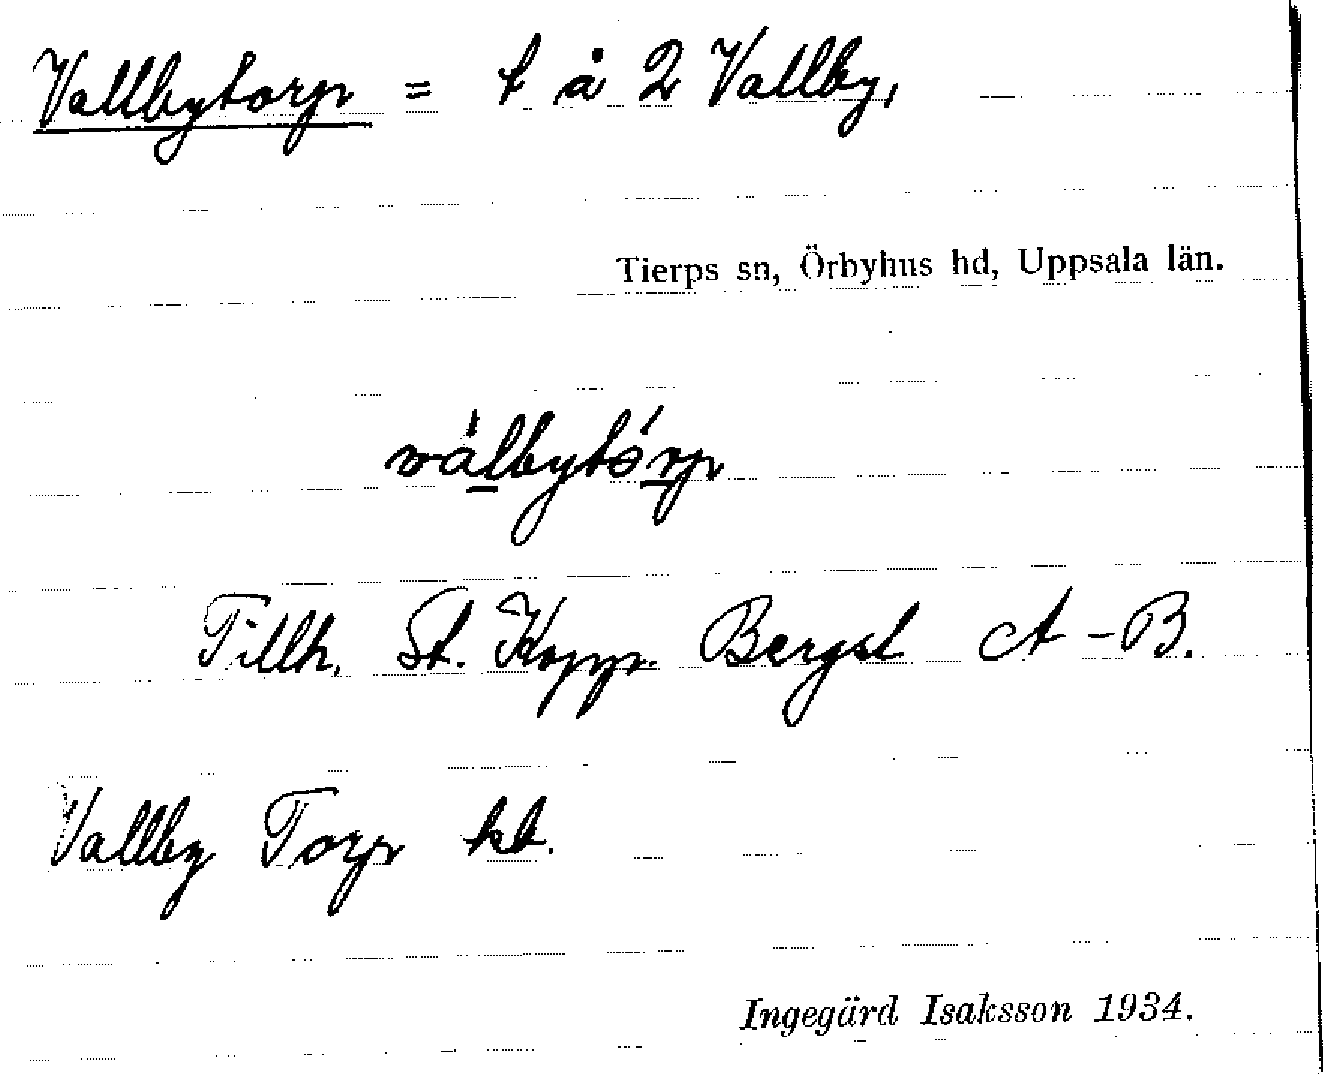 Vallbytorp = t å 2 Vallby,
Tierps sn, Örbyhus hd, Uppsala län.
válbytórp
Tillh. St. Kopp. Bergsl A-B.
Vallby Torp kt.
Ingegärd Isaksson 1934.